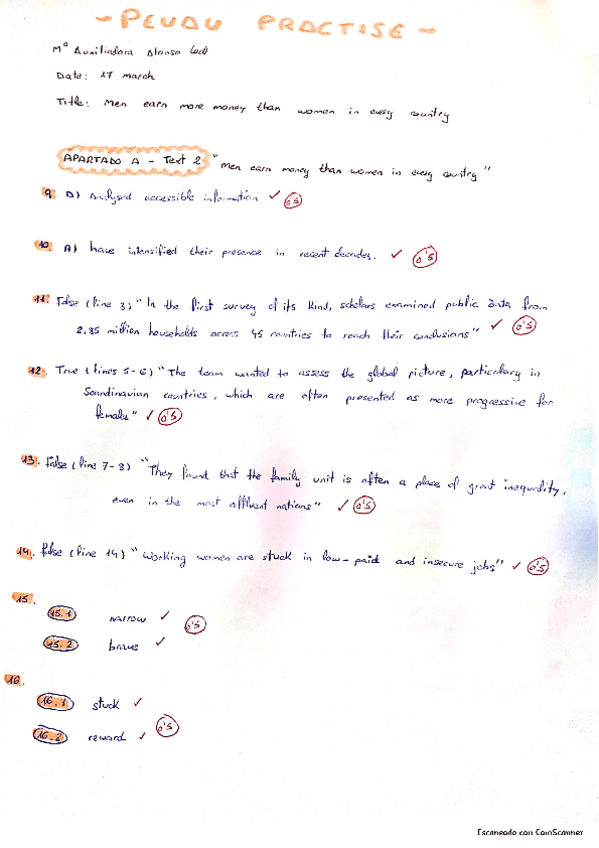 ~ PEVAU PRACTISE ~
Mª Auxiliadora Alonso Leal
Date: 17 march
Title: Men earn more money than women in every country
APARTADO A - Text 2 "Men earn money than women in every country"
9. D) Analysed accessible information ✓ 0'5
10. A) have intensified their presence in recent decades. ✓ 0'5
11. False (line 3) "In the first survey of its kind, scholars examined public data from
2,85 million households across 45 countries to reach their conclusions" ✓ 0'5
12. True (lines 5-6) "The team wanted to assess the global picture, particulary in
Scandinavian countries, which are often presented as more progressive for
females" ✓ 0'5
13. False (line 7-8) "They found that the family unit is often a place of great inequality,
even in the most affluent nations" ✓ 0'5
14. False (line 14) "Working women are stuck in low-paid and insecure jobs" ✓ 0'5
15.
15.1 narrow ✓ 0'5
15.2 brave ✓
16.
16.1 stuck ✓
16.2 reward ✓ 0'5
Escaneado con CamScanner